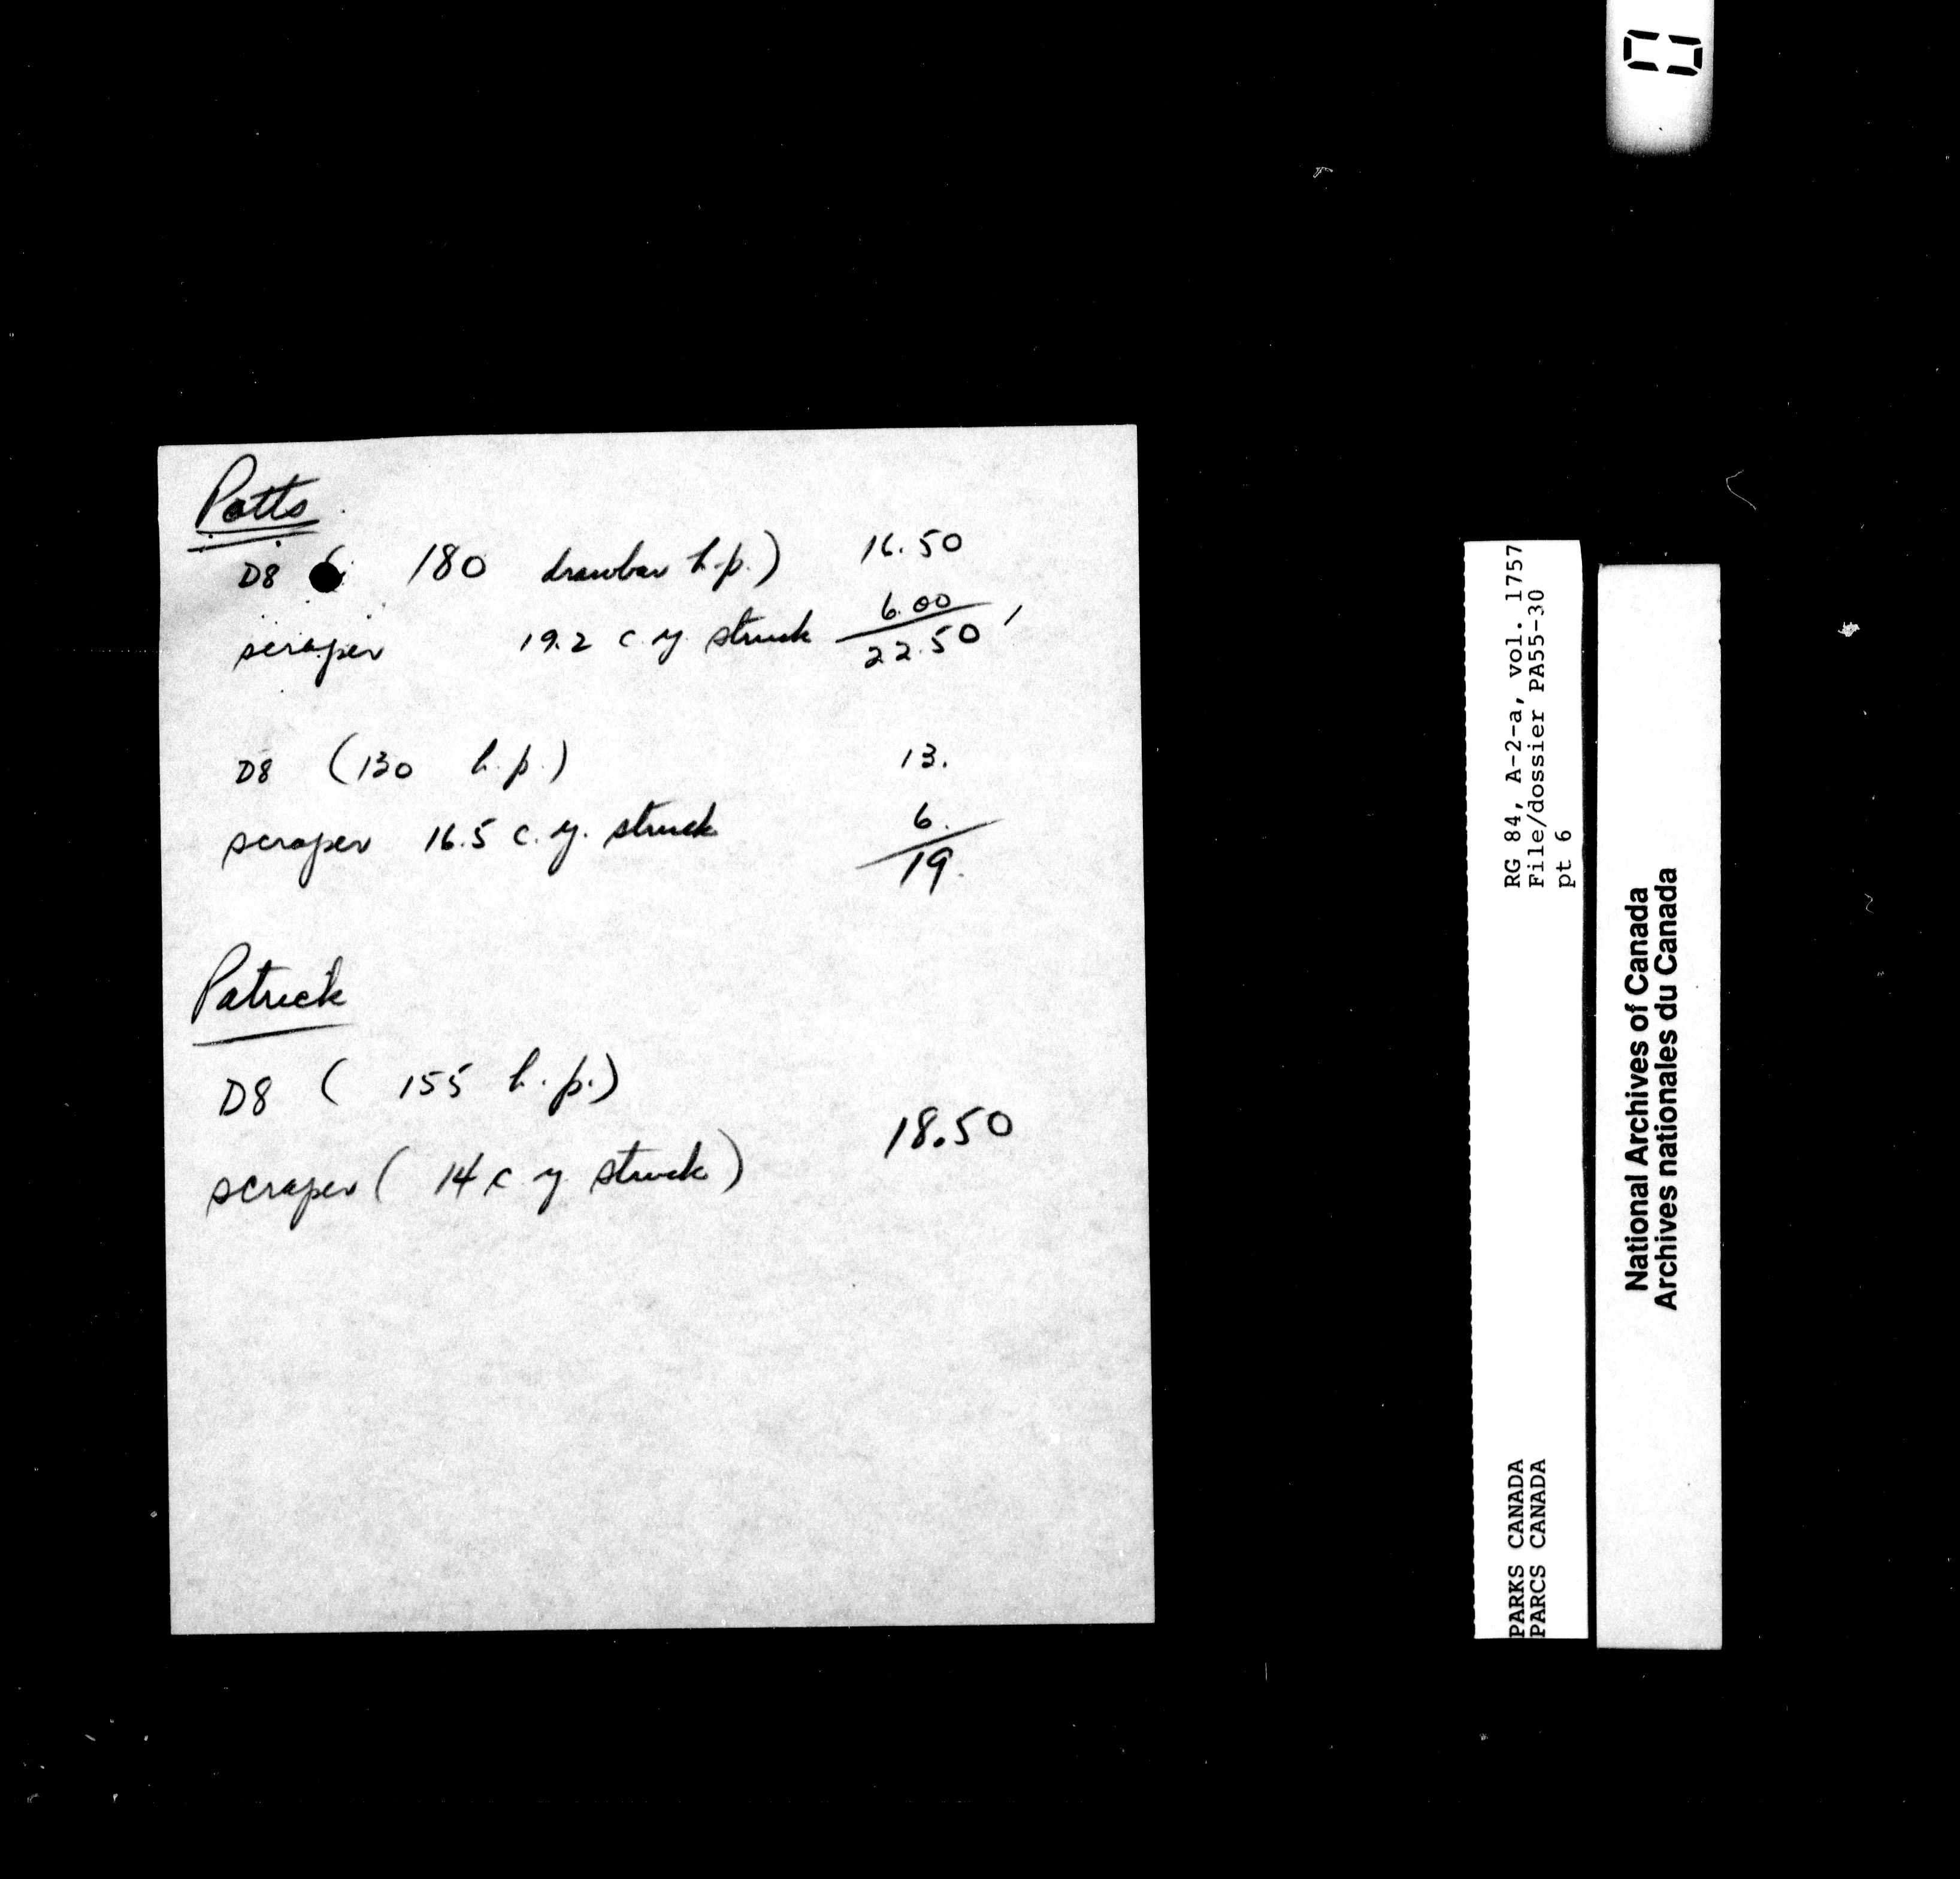 Potts
D8 ( 180 drawbar h.p.) 16.50
scraper 19.2 c.y. struck 6.00
22.50
D8 (130 h.p.) 13.
scraper 16.5 c.y. struck 6.
19.
Patrick
D8 ( 155 h.p.)
18.50
scraper ( 14 c.y. struck)
RG 84, A-2-a, vol. 1757
File/dossier PA55-30
pt 6
PARKS CANADA
PARCS CANADA
National Archives of Canada
Archives nationales du Canada